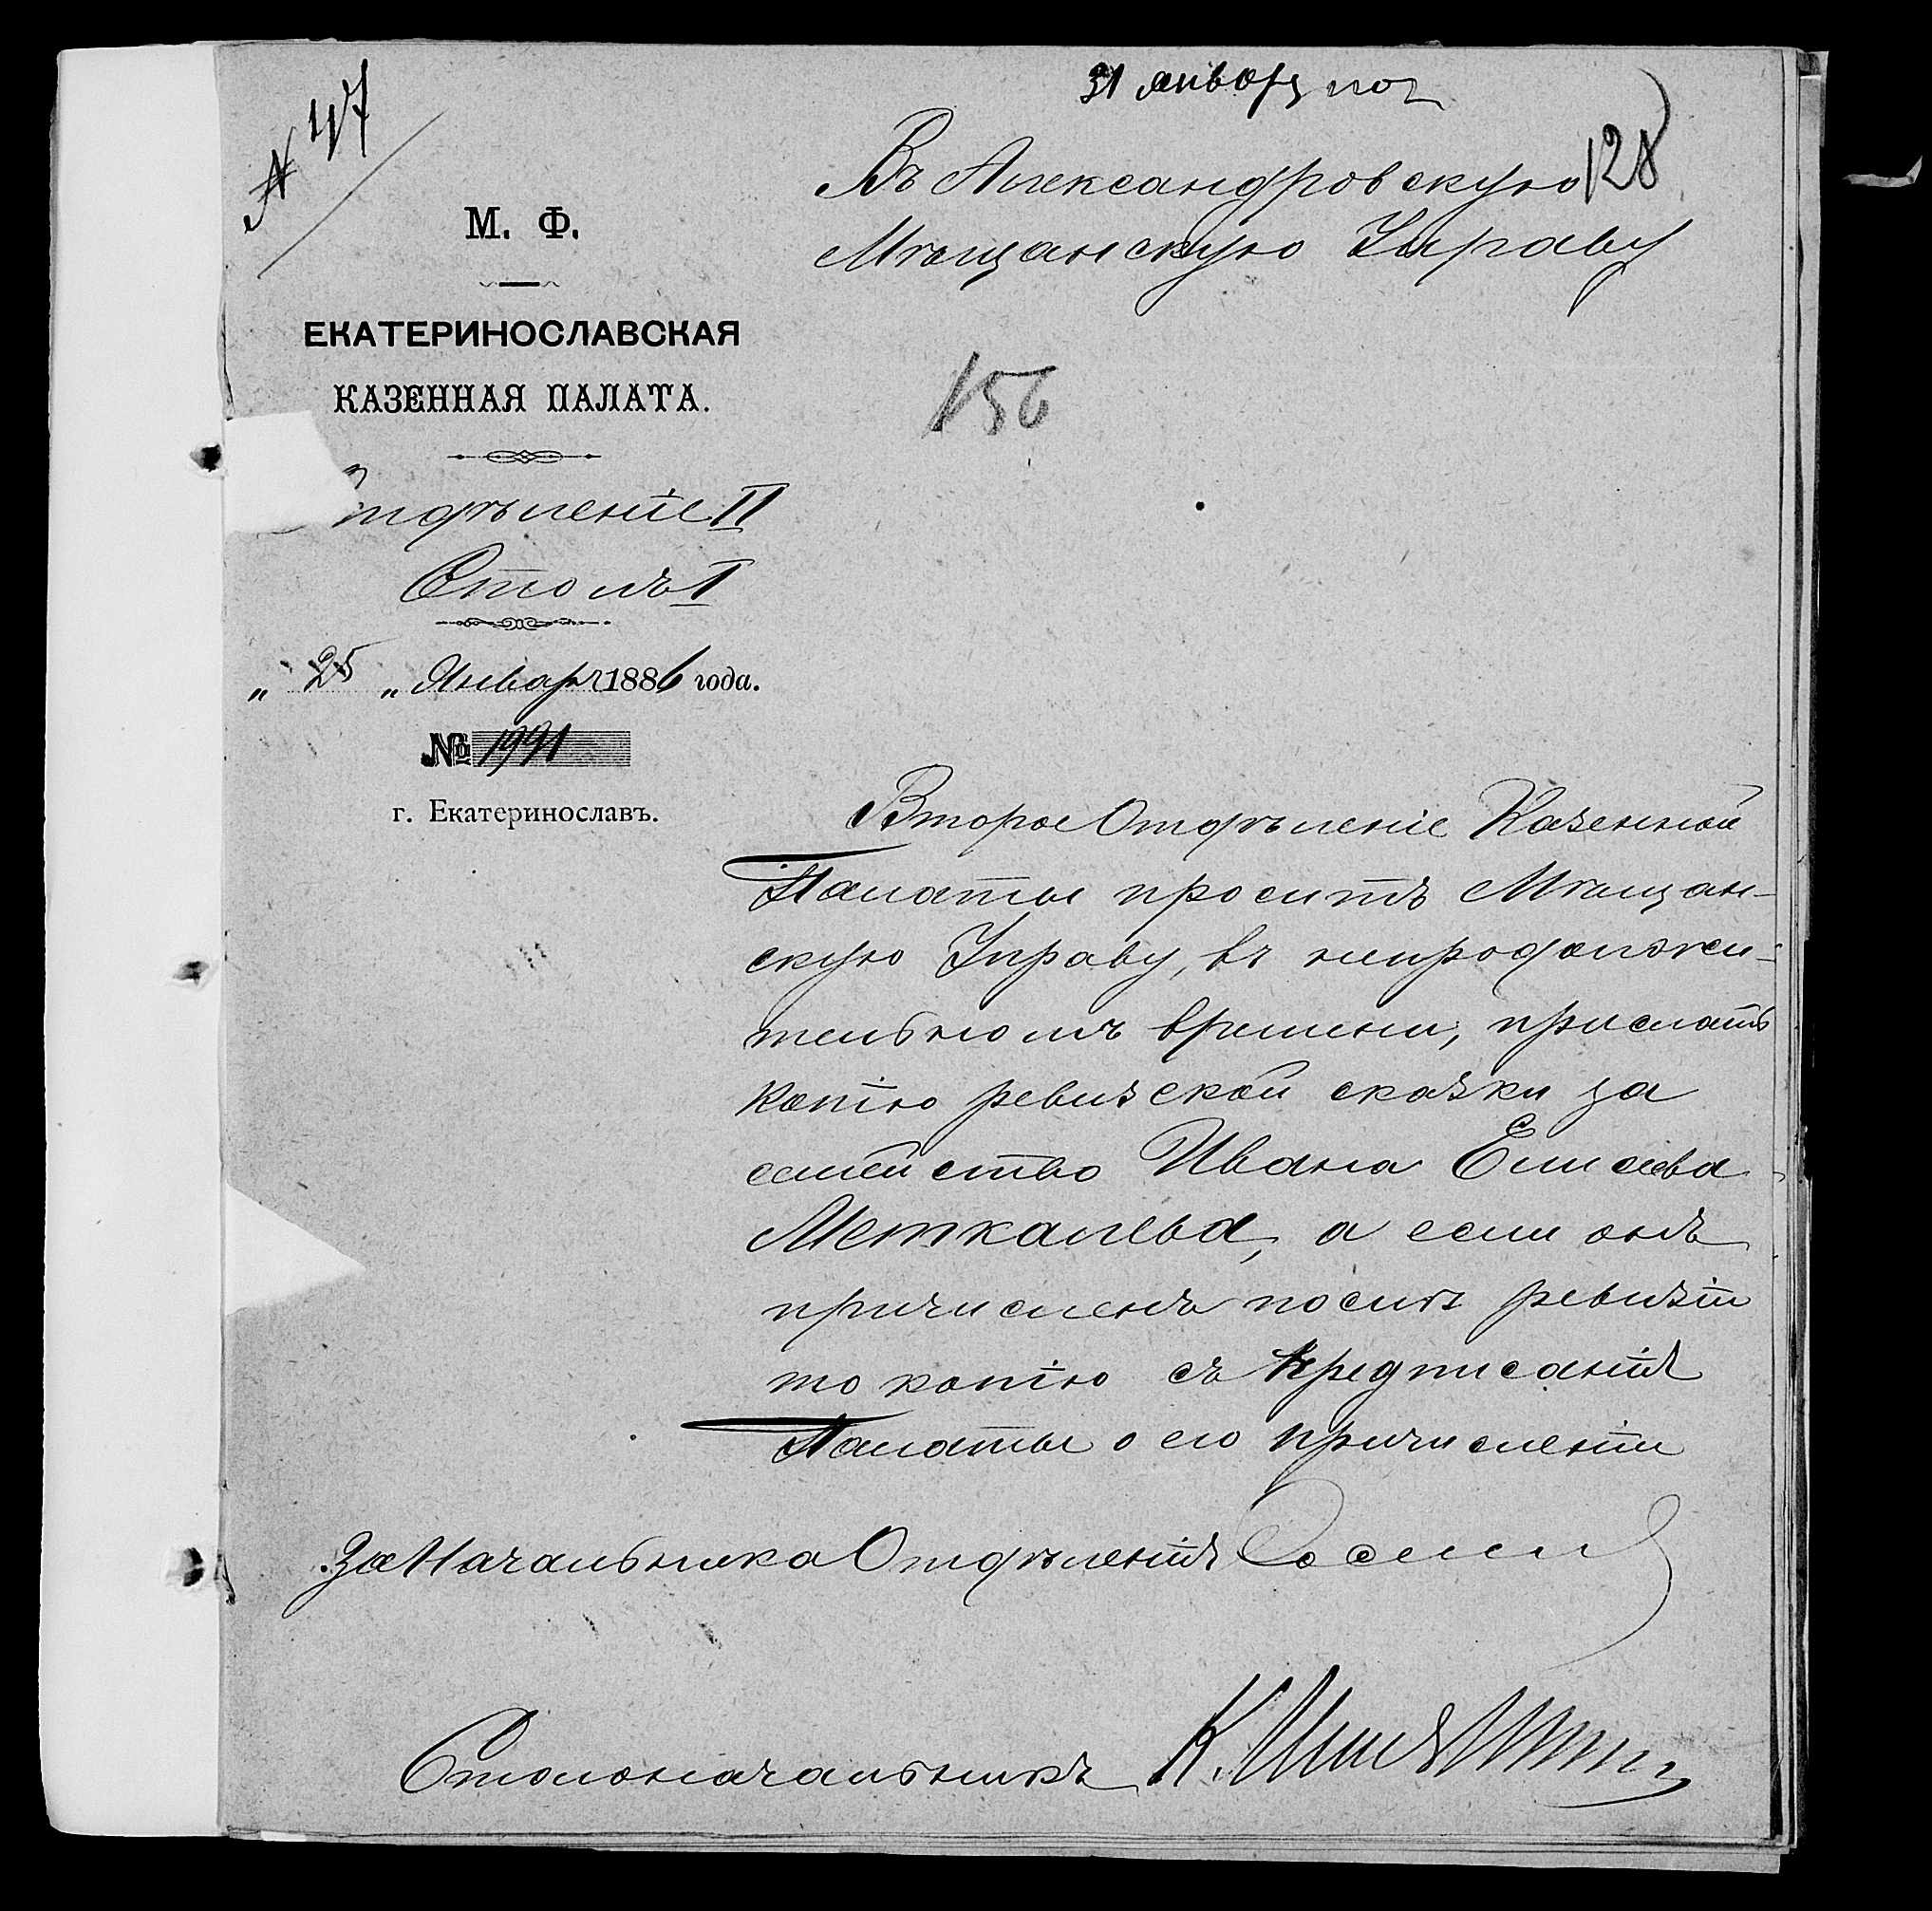 31 января пол
№ 47
128
Въ Александровскую
Мѣщанскую Управу
М. Ф.
ЕКАТЕРИНОСЛАВСКАЯ
КАЗЕННАЯ ПАЛАТА.
156
Отдѣленіе II
Столъ I
„ 25 „ Января 1886 года.
№ 1991
г. Екатеринославъ.
Второе Отдѣленіе Казенной
Палаты проситъ Мѣщан-
скую Управу, въ непродолжи-
тельномъ времени, прислать
копію ревизской сказки за
семейство Ивана Елисеева
Меткалева, а если онъ
причисленъ послѣ ревизіи
то копію съ предписанія
Палаты о его причисленіи
За Начальника Отдѣленія
Столоначальникъ К.